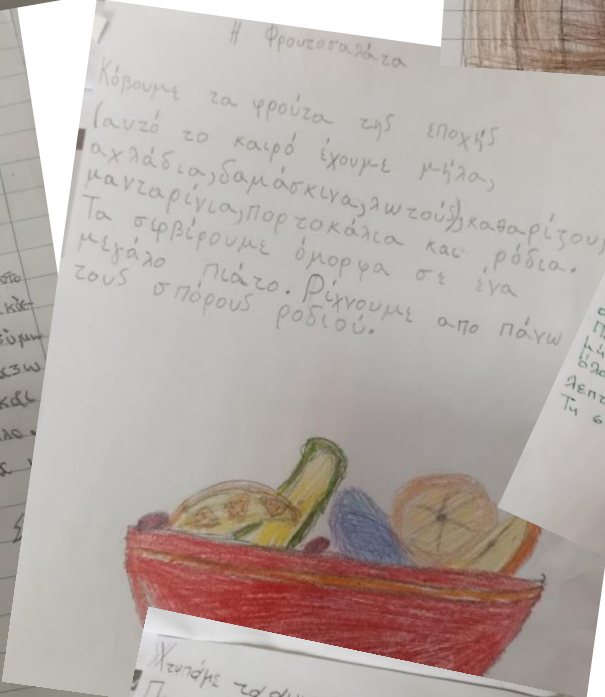 Η Φρουτοσαλάτα
Κόβουμε τα φρούτα της εποχής
(αυτό το καιρό έχουμε μήλα,
αχλάδια, δαμάσκηνα, λωτούς), καθαρίζου
μανταρίνια, πορτοκάλια και ρόδια.
Τα σιρβίρουμε όμορφα σε ένα
μεγάλο πιάτο. Ρίχνουμε απο πάνω
τους σπόρους ροδιού.
Χτυπάμε